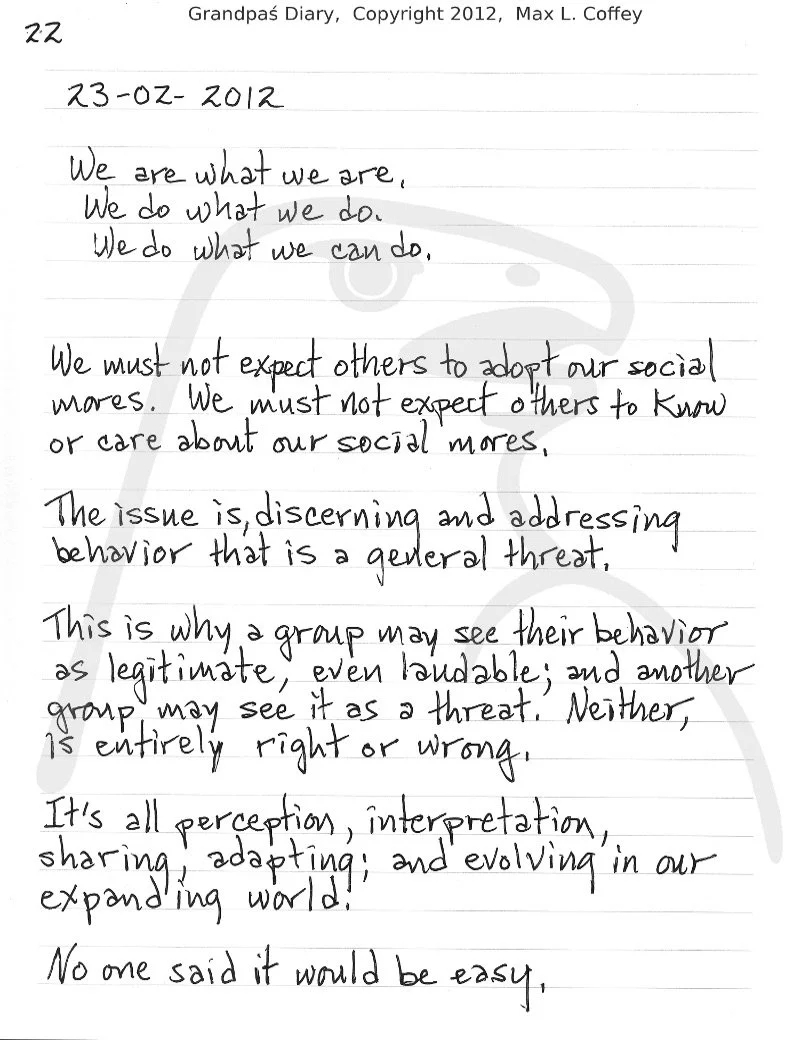 Grandpaś Diary, Copyright 2012, Max L. Coffey
22
23-02-2012
We are what we are.
We do what we do.
We do what we can do.
We must not expect others to adopt our social
mores. We must not expect others to know
or care about our social mores.
The issue is, discerning and addressing
behavior that is a general threat.
This is why a group may see their behavior
as legitimate, even laudable; and another
group may see it as a threat. Neither,
is entirely right or wrong.
It's all perception, interpretation,
sharing, adapting; and evolving in our
expanding world!
No one said it would be easy.